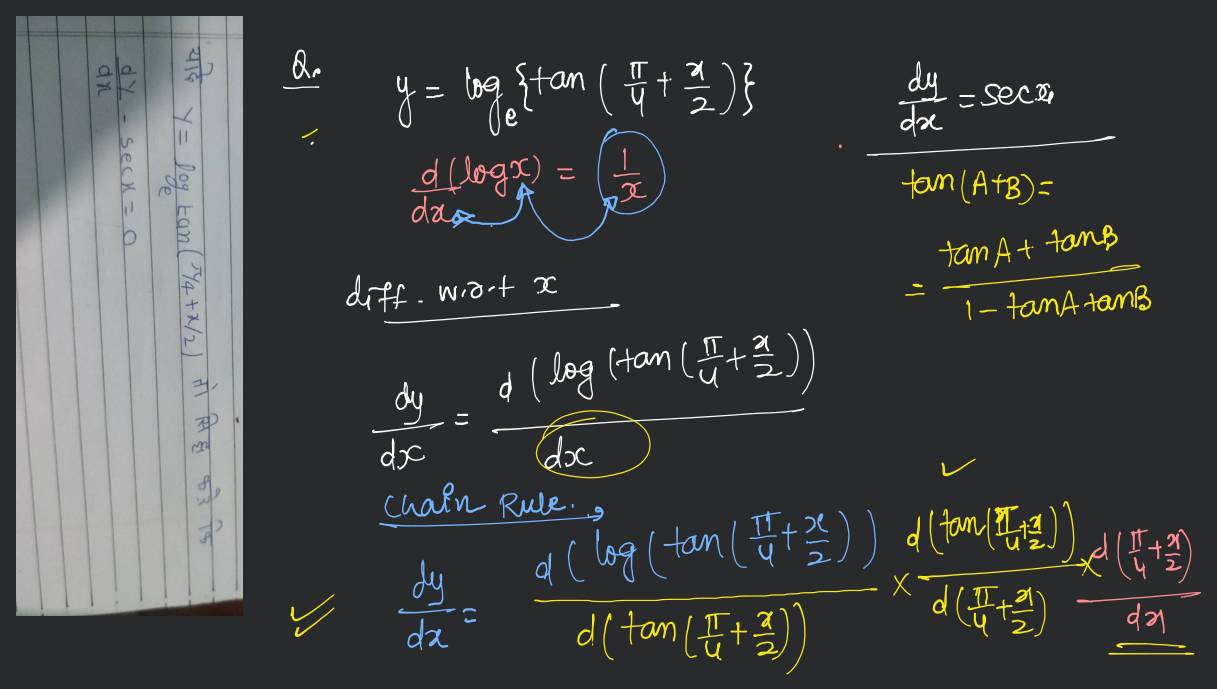 यदि y = log_e tan(π/4 + x/2) तो सिद्ध करो कि
dy/dx - sec x = 0
Q.
y = log_e {tan(π/4 + x/2)}
d(log x)/dx = 1/x
diff. w.r.t x
dy/dx = d(log(tan(π/4 + x/2)))/dx
Chain Rule.
dy/dx = d(log(tan(π/4 + x/2)))/d(tan(π/4 + x/2)) × d(tan(π/4 + x/2))/d(π/4 + x/2) × d(π/4 + x/2)/dx
dy/dx = sec x
tan(A+B) =
= tanA + tanB / 1 - tanA tanB